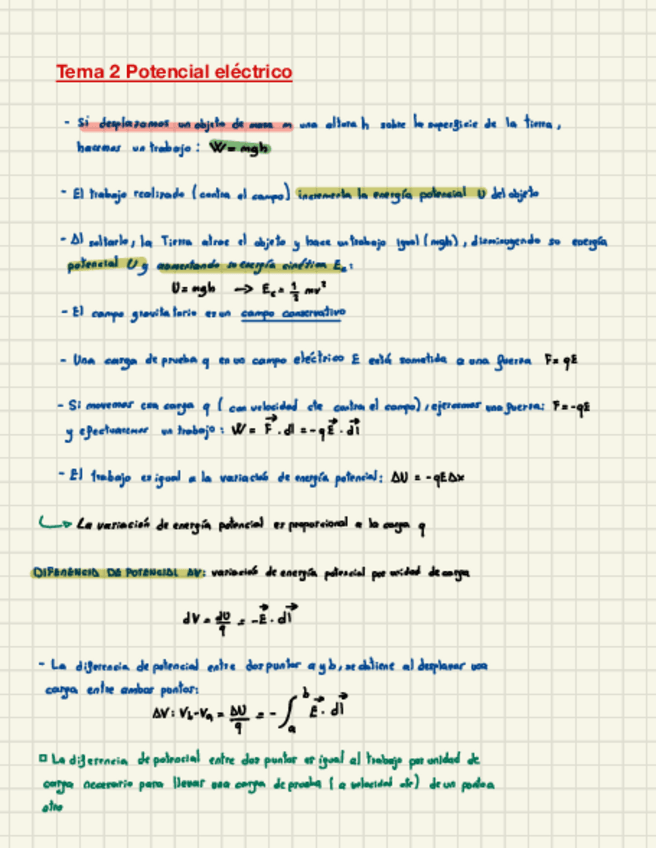 Tema 2 Potencial eléctrico
- Si desplazamos un objeto de masa m una altura h sobre la superficie de la tierra,
hacemos un trabajo : W = mgh
- El trabajo realizado (contra el campo) incrementa la energía potencial U del objeto
- Al soltarlo, la Tierra atrae el objeto y hace un trabajo igual (mgh), disminuyendo su energía
potencial U y aumentando su energía cinética Ec:
U = mgh → Ec = 1/2 mv²
- El campo gravitatorio es un campo conservativo
- Una carga de prueba q en un campo eléctrico E está sometida a una fuerza F = qE
- Si movemos esa carga q (con velocidad cte contra el campo), ejercemos una fuerza: F = -qE
y efectuaremos un trabajo : W = F⃗ · dl = -qE⃗ · dl⃗
- El trabajo es igual a la variación de energía potencial: ΔU = -qEΔx
↳ La variación de energía potencial es proporcional a la carga q
DIFERENCIA DE POTENCIAL ΔV: variación de energía potencial por unidad de carga
dV = dU/q = -E⃗ · dl⃗
- La diferencia de potencial entre dos puntos a y b, se obtiene al desplazar una
carga entre ambos puntos:
ΔV: Vb-Va = ΔU/q = - ∫ₐᵇ E⃗ · dl⃗
□ La diferencia de potencial entre dos puntos es igual al trabajo por unidad de
carga necesario para llevar una carga de prueba (a velocidad cte) de un punto a
otro